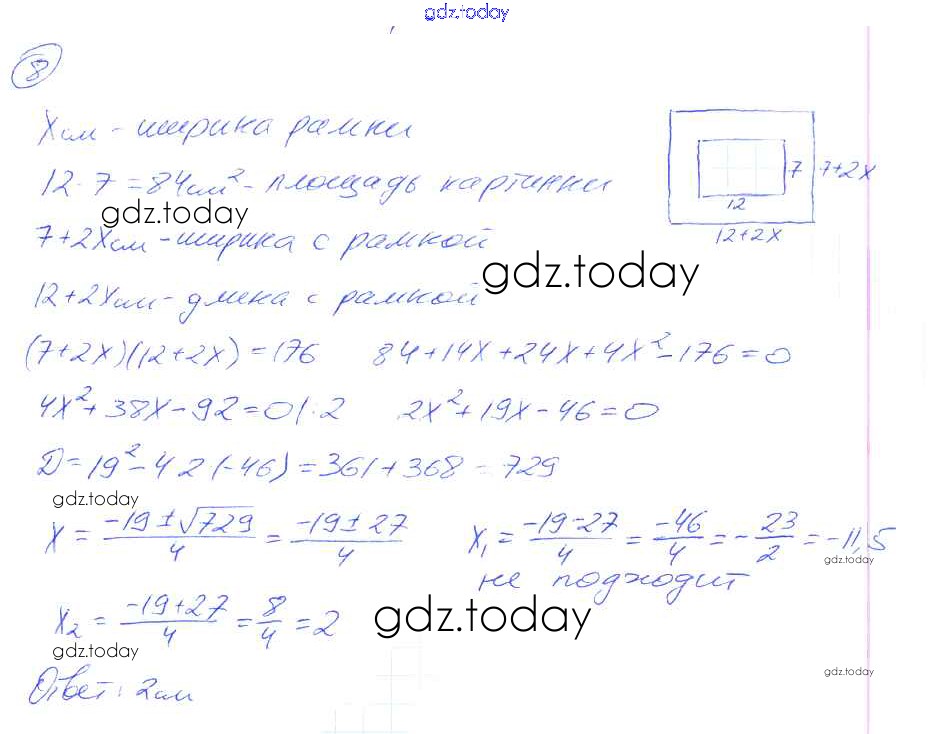 gdz.today
8
Xсм - ширина рамки
12·7=84см² - площадь картинки
gdz.today
7+2Xсм - ширина с рамкой
7
7+2X
12
12+2X
gdz.today
12+2Xсм - длина с рамкой
(7+2X)(12+2X)=176 84+14X+24X+4X²-176=0
4X²+38X-92=0|·2 2X²+19X-46=0
D=19²-4·2(-46)=361+368=729
gdz.today
X=(-19±√729)/4=(-19±27)/4 X₁=(-19-27)/4=(-46)/4=-23/2=-11,5
gdz.today
не подходит
X₂=(-19+27)/4=8/4=2
gdz.today
gdz.today
Ответ: 2см
gdz.today